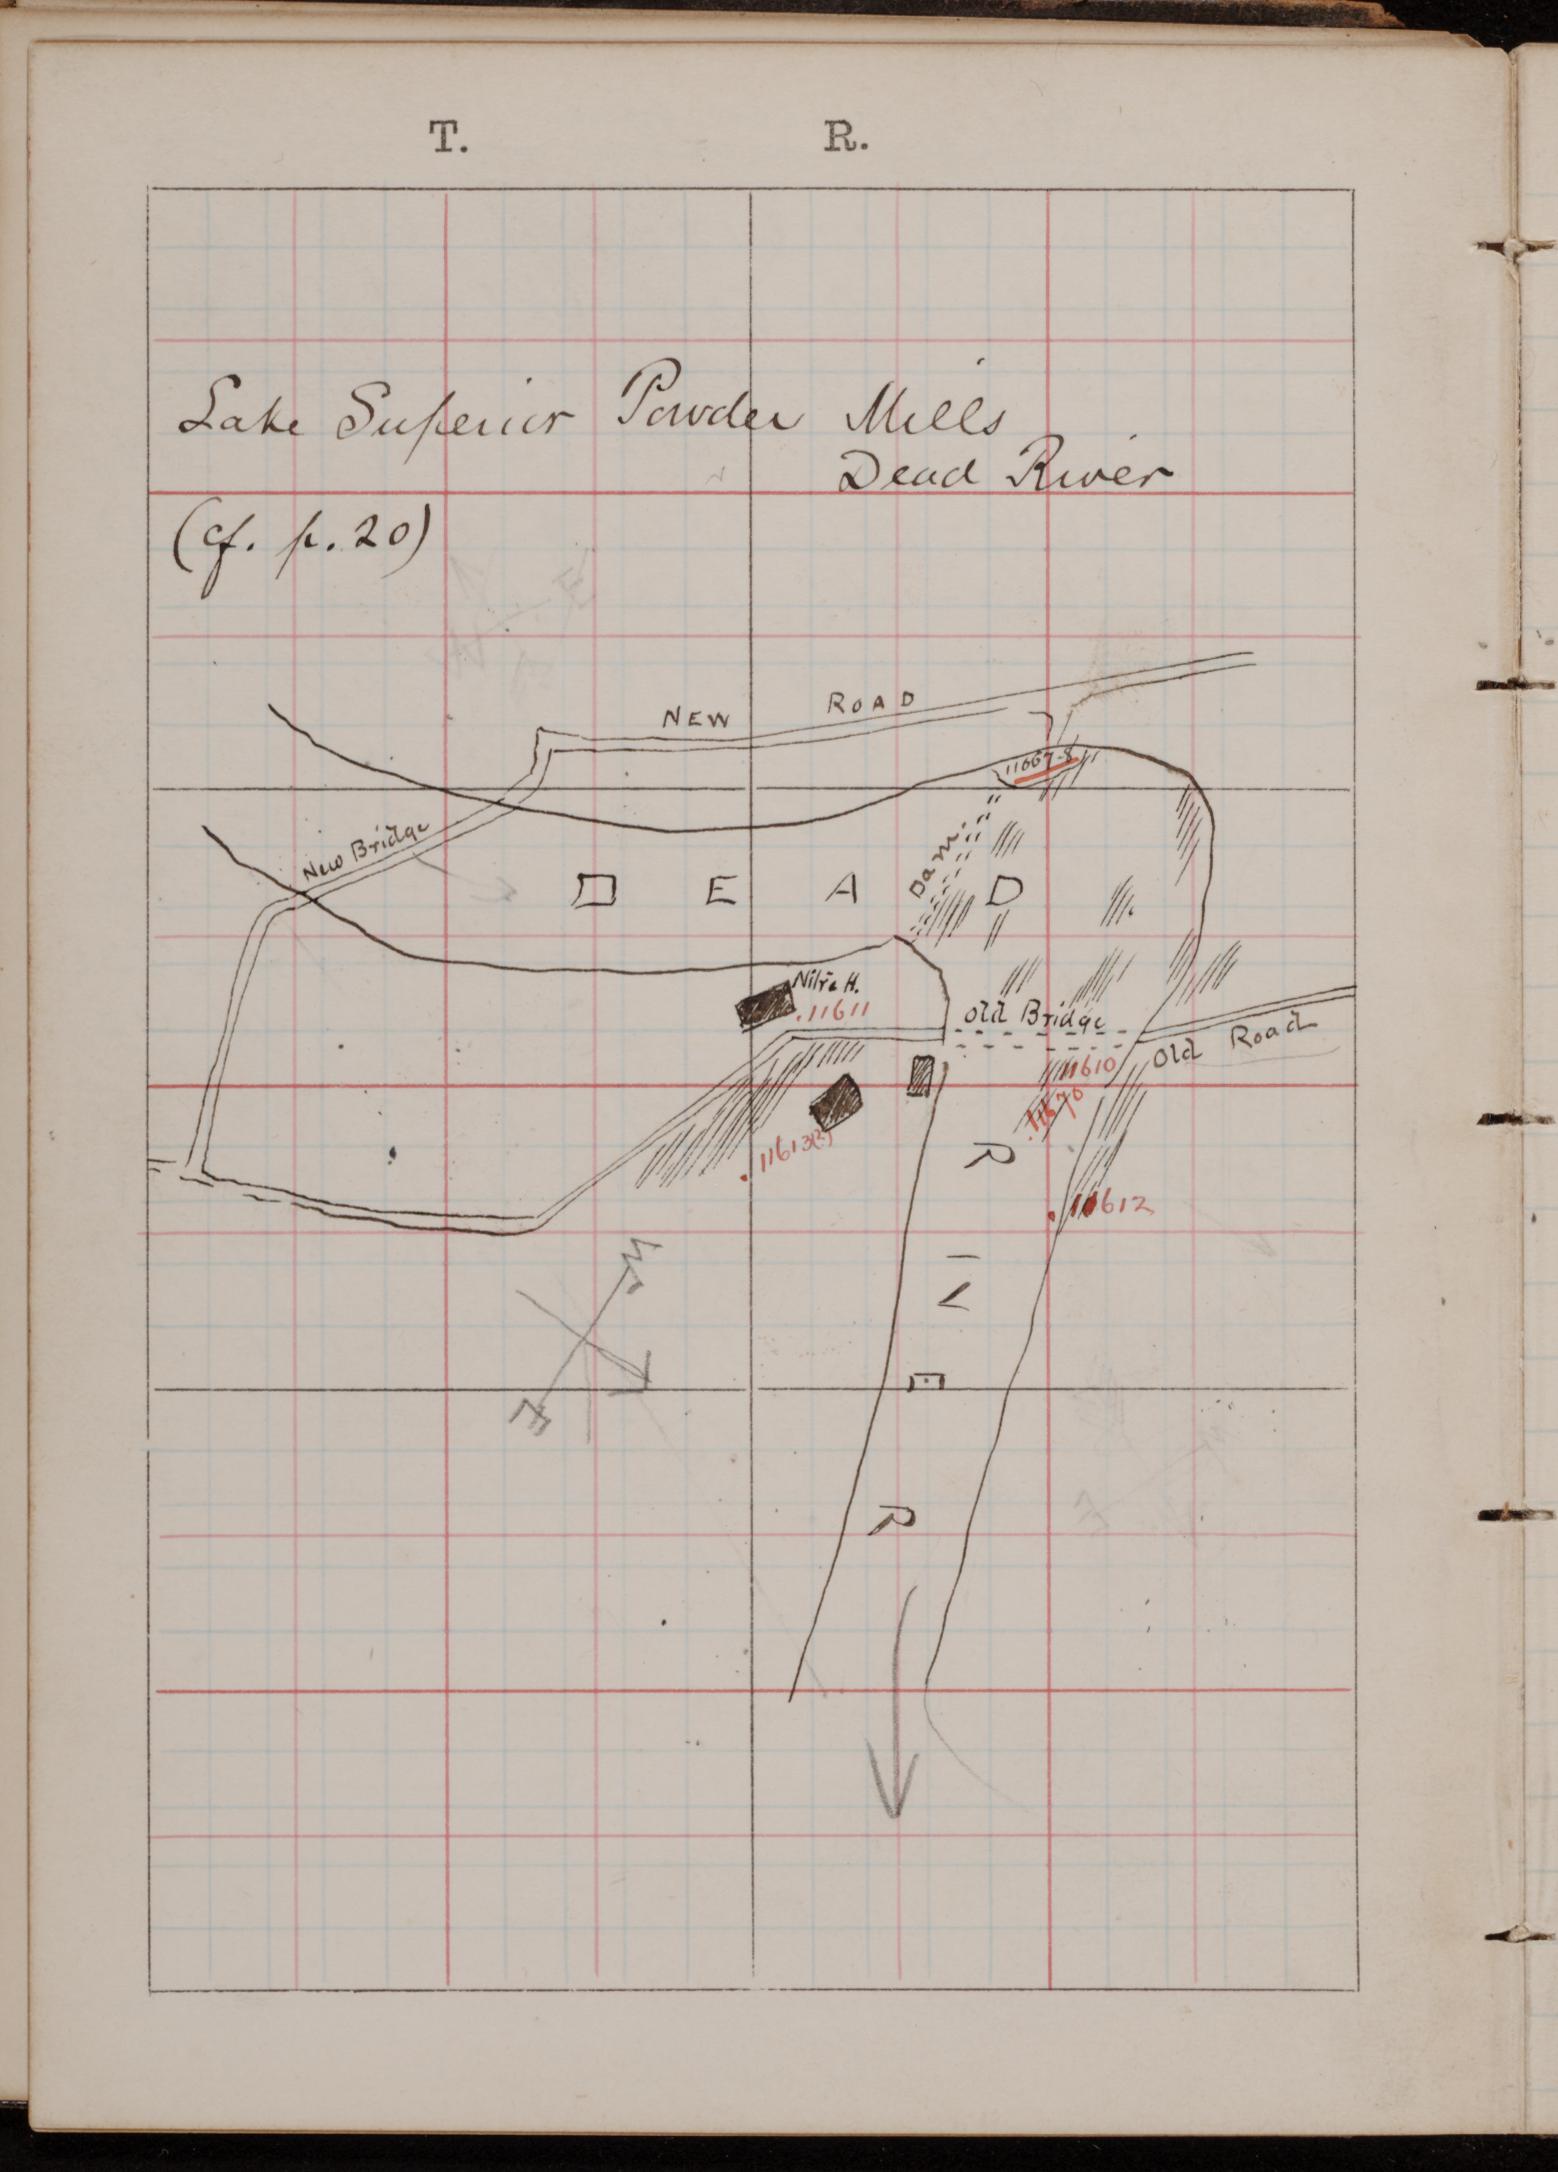 T. R.
Lake Superior Powder Mills
Dead River
(cf. p. 20)
NEW ROAD
11667-8
New Bridge
Dam
DEAD
Nitre H.
.11611
Old Bridge
Old Road
11610
.11670
.11613(?)
.11612
RIVER
W
E